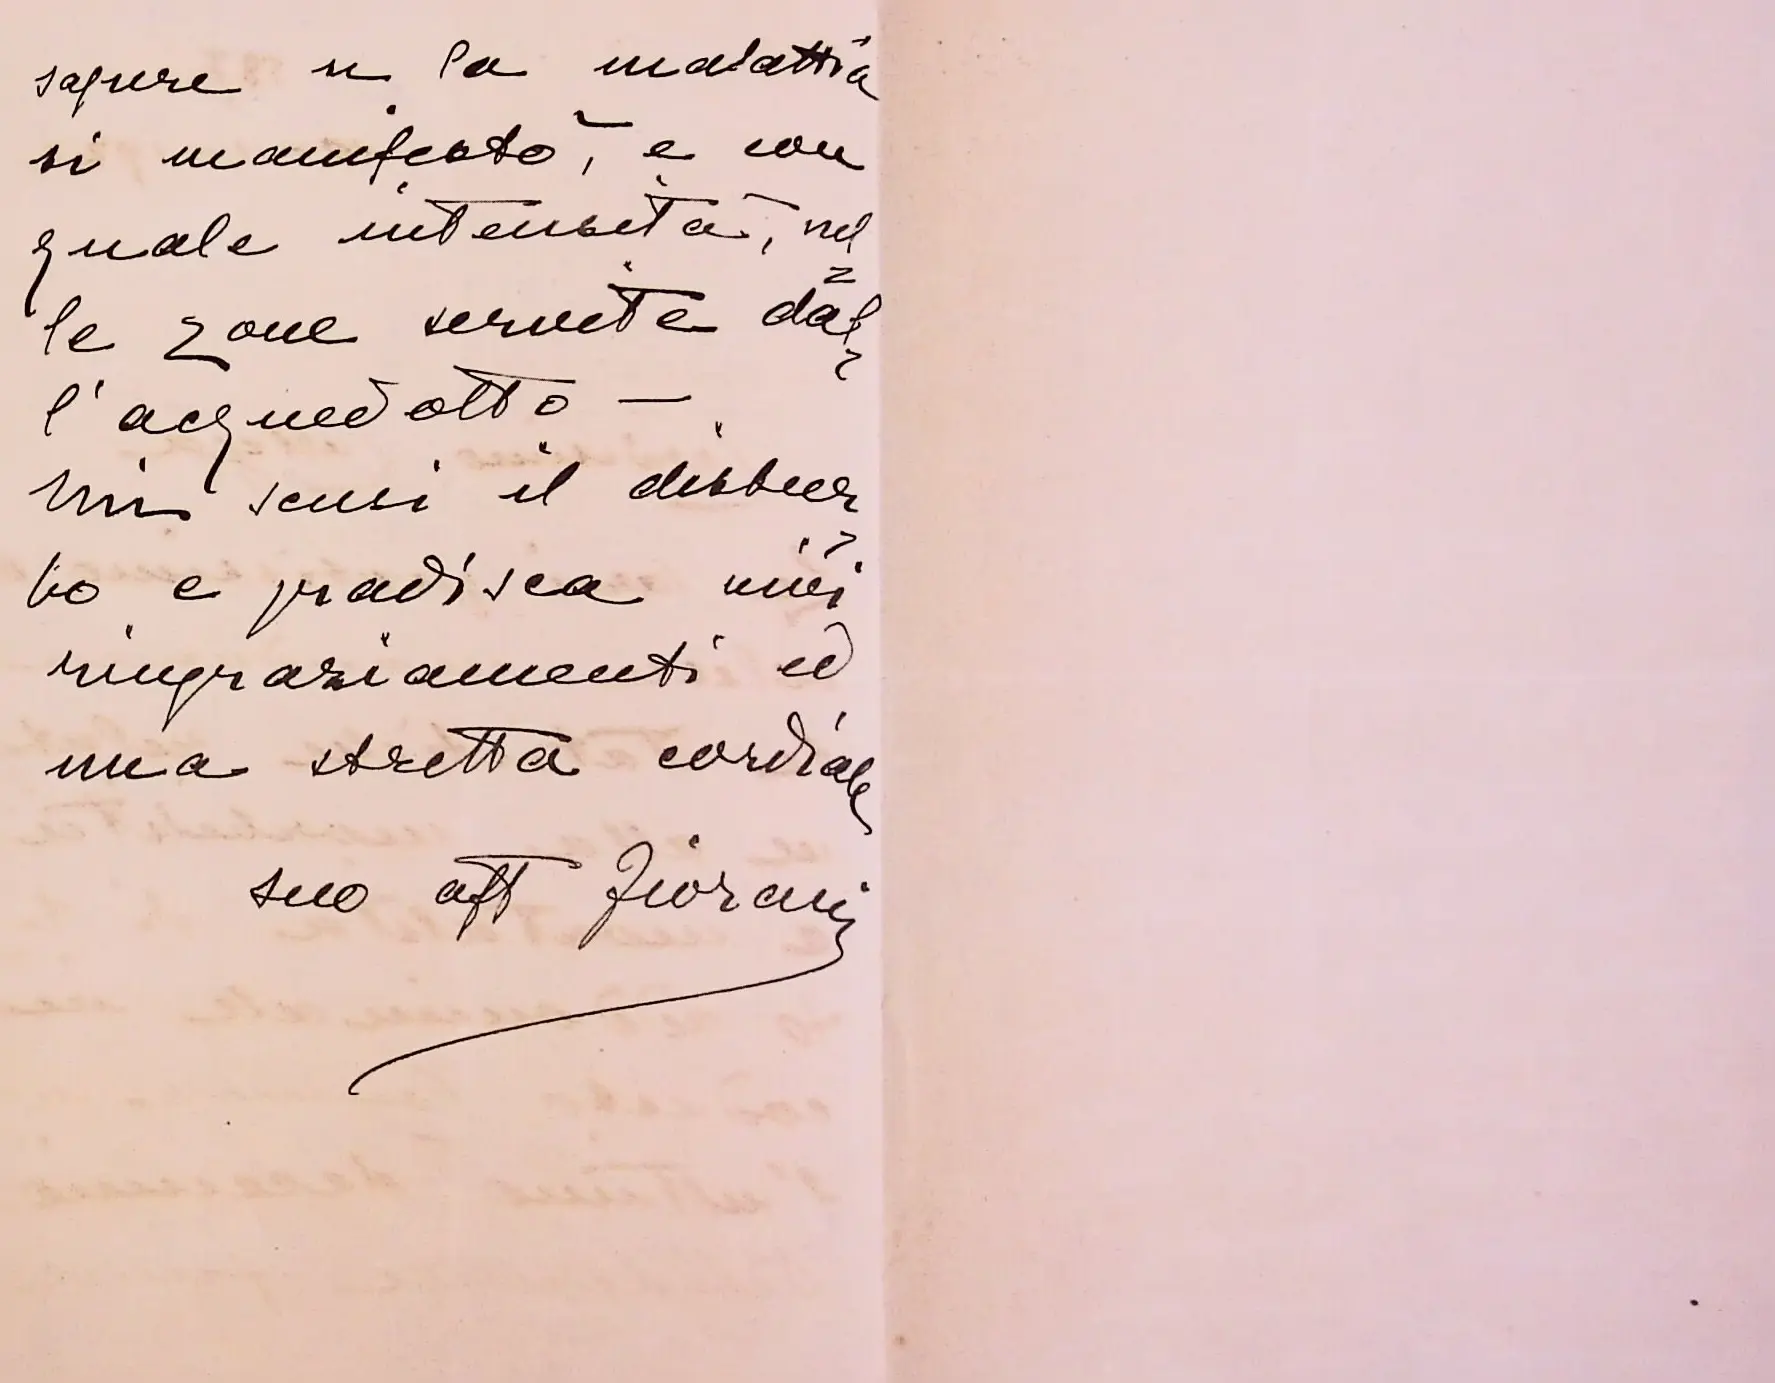 sapere se la malattia
si manifestò, e con
quale intensità, nel
le zone servite dal
l'acquedotto —
Mi scusi il distur
bo e gradisca miei
ringraziamenti ed
una stretta cordiale
suo aff Fiorani